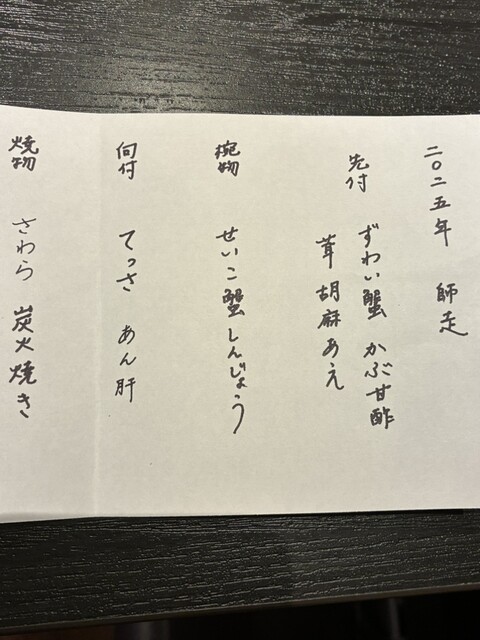 二〇二五年 師走
先付 ずわい蟹 かぶ甘酢
茸 胡麻あえ
椀物 せいこ蟹しんじょう
向付 てっさ あん肝
焼物 さわら 炭火焼き